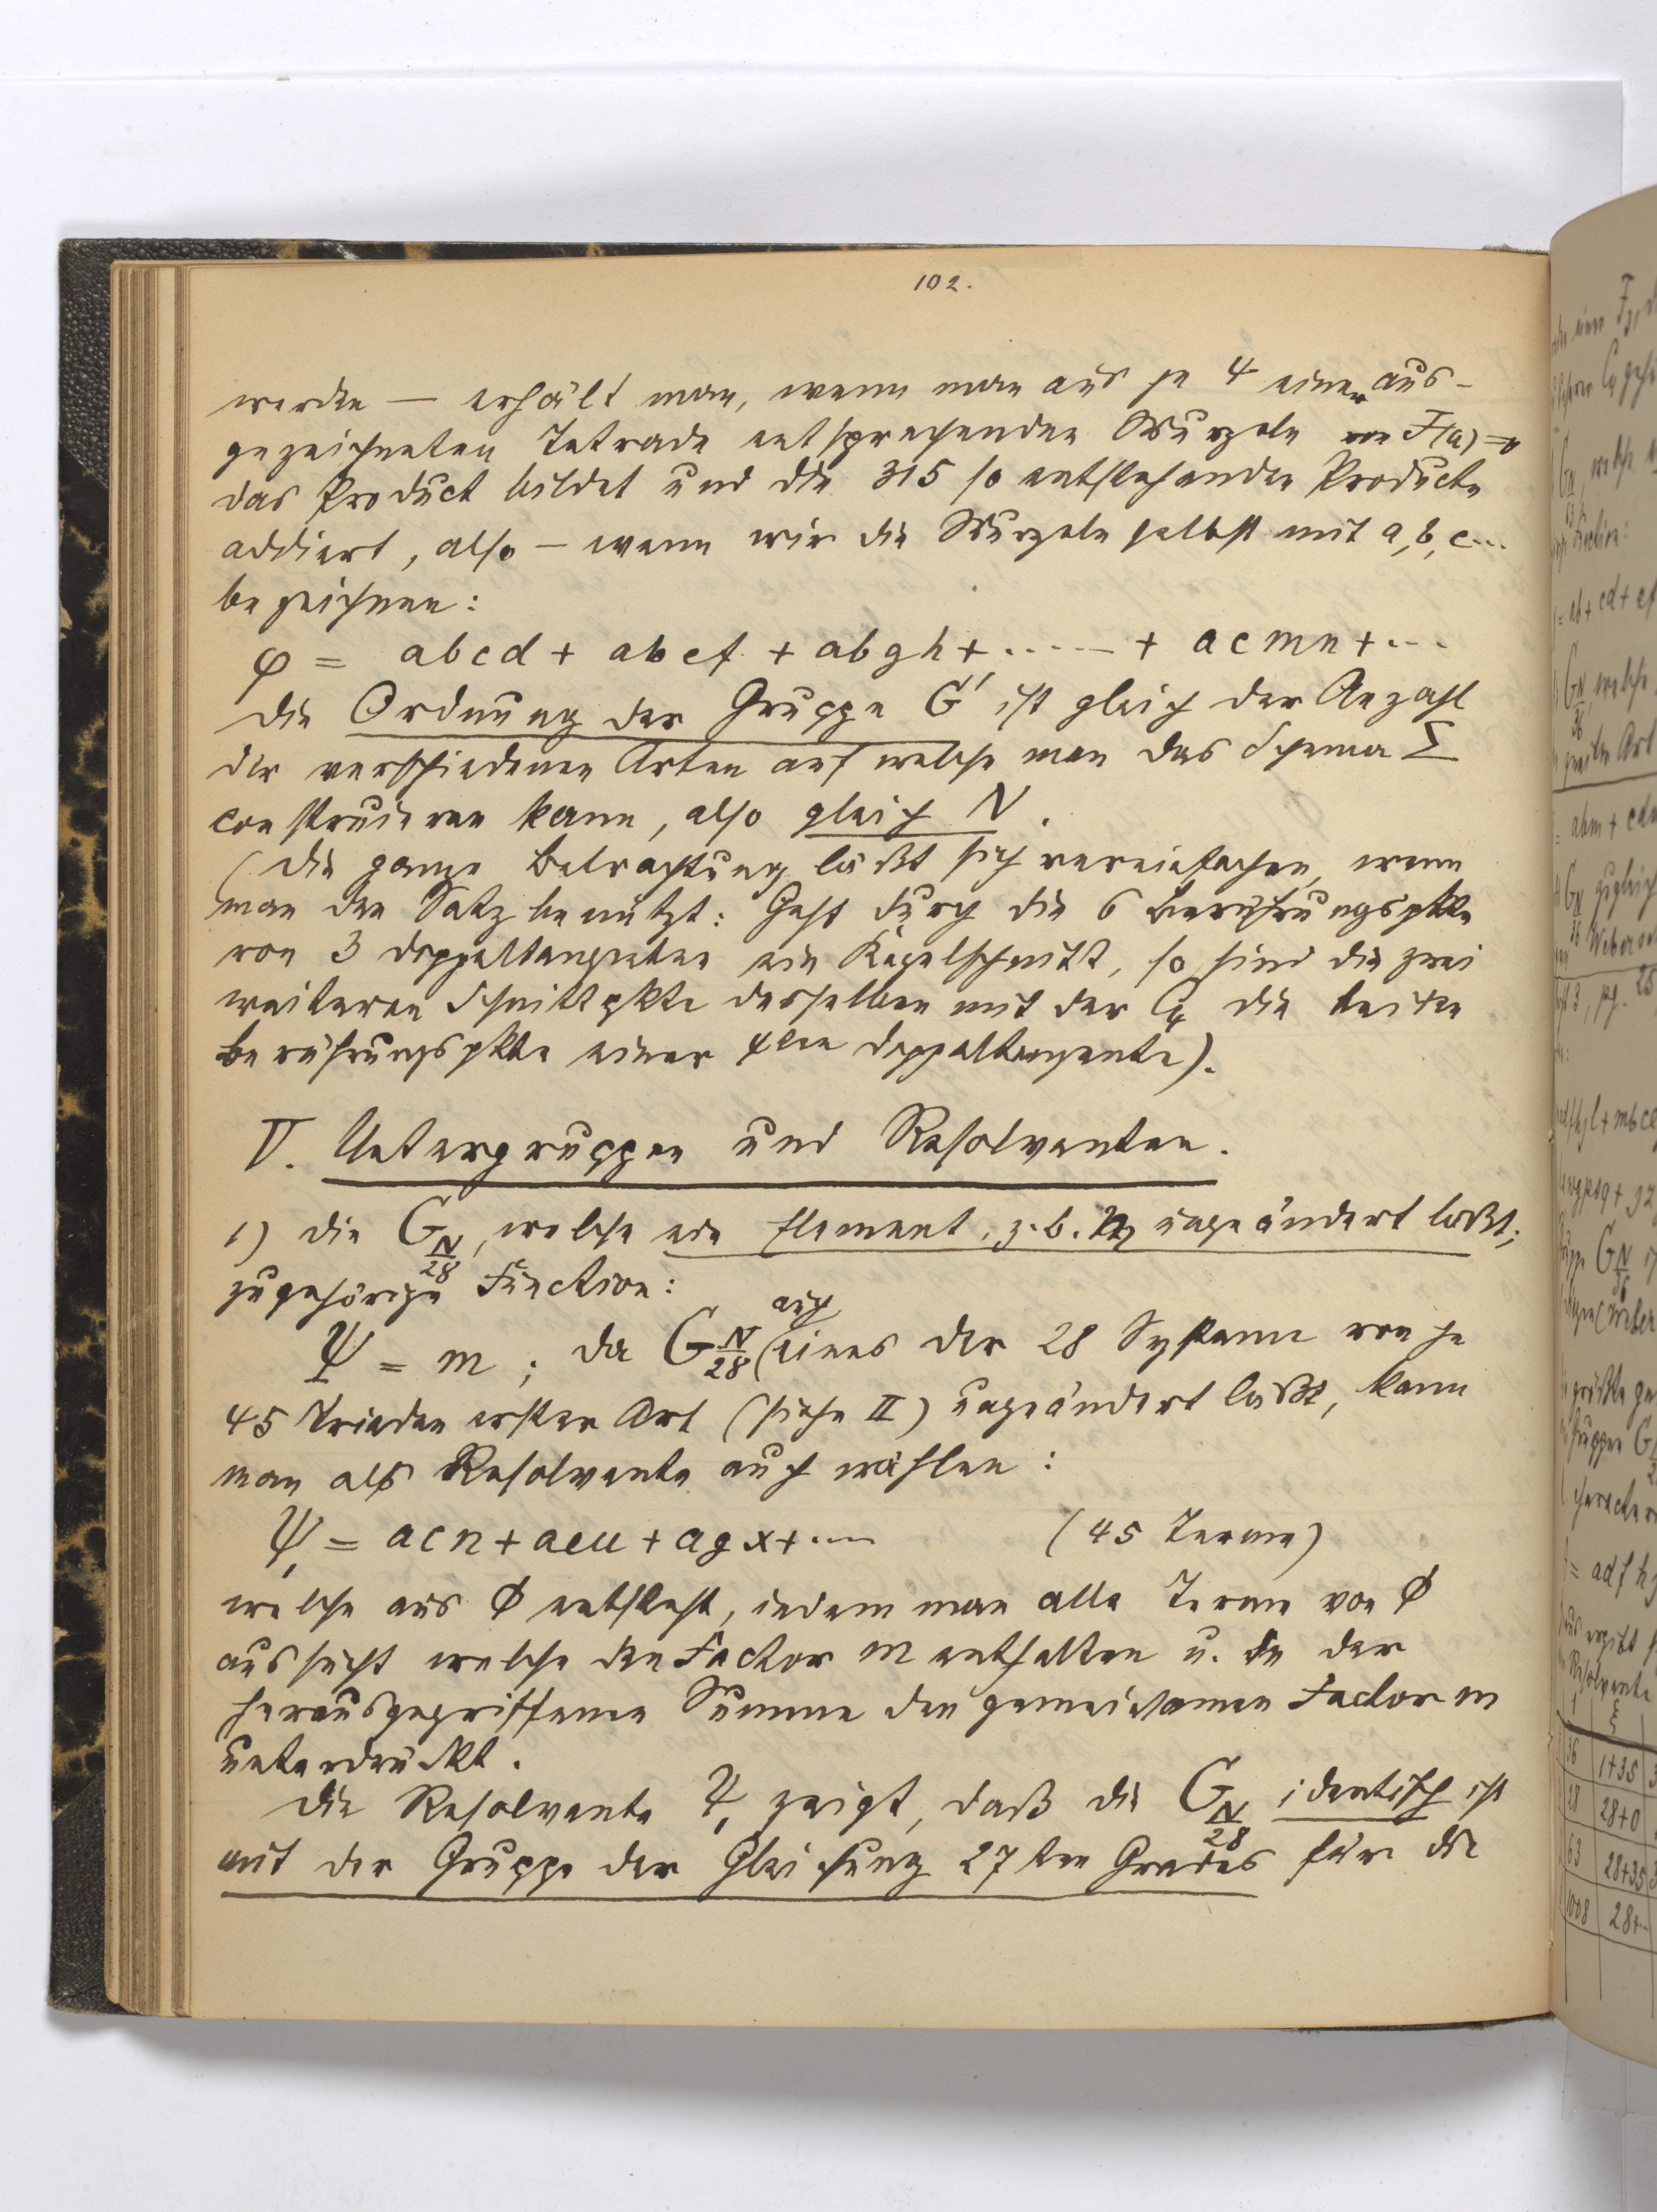 102.
werden — erhält man, wenn man aus je 4 einer aus-
gezeichneten Tetrade entsprechenden Wurzeln von F(a)=0
das Product bildet und die 315 so entstehenden Producte
addiert, also — wenn wir die Wurzeln selbst mit a, b, c...
bezeichnen:
φ = abcd + abef + abgh + ..... + acmn + ...
Die Ordnung der Gruppe G' ist gleich der Anzahl
der verschiedenen Arten auf welche man das Schema Σ
construieren kann, also gleich N.
(Die ganze Betrachtung läßt sich vereinfachen, wenn
man den Satz benützt: Geht durch die 6 Berührungspkte
von 3 Doppeltangenten ein Kegelschnitt, so sind die zwei
weiteren Schnittpkte desselben mit der C4 die beiden
Berührungspkte einer 4ten Doppeltangente).
V. Untergruppen und Resolventen.
1) Die G N/28, welche ein Element, z. b. m ungeändert läßt;
zugehörige Function:
Ψ = m ; da G N/28 auch eines der 28 Systeme von je
45 Triaden erster Art (siehe II) ungeändert läßt, kann
man als Resolvente auch wählen:
Ψ, = acn + aeu + agx + .... (45 Terme)
welche aus Φ entsteht, indem man alle Terme von Φ
aussucht welche den Factor m enthalten u. in der
herausgegriffenen Summe den gemeinsamen Factor m
unterdrückt.
Die Resolvente Ψ, zeigt, daß die G N/28 identisch ist
mit der Gruppe der Gleichung 27ten Grades für die